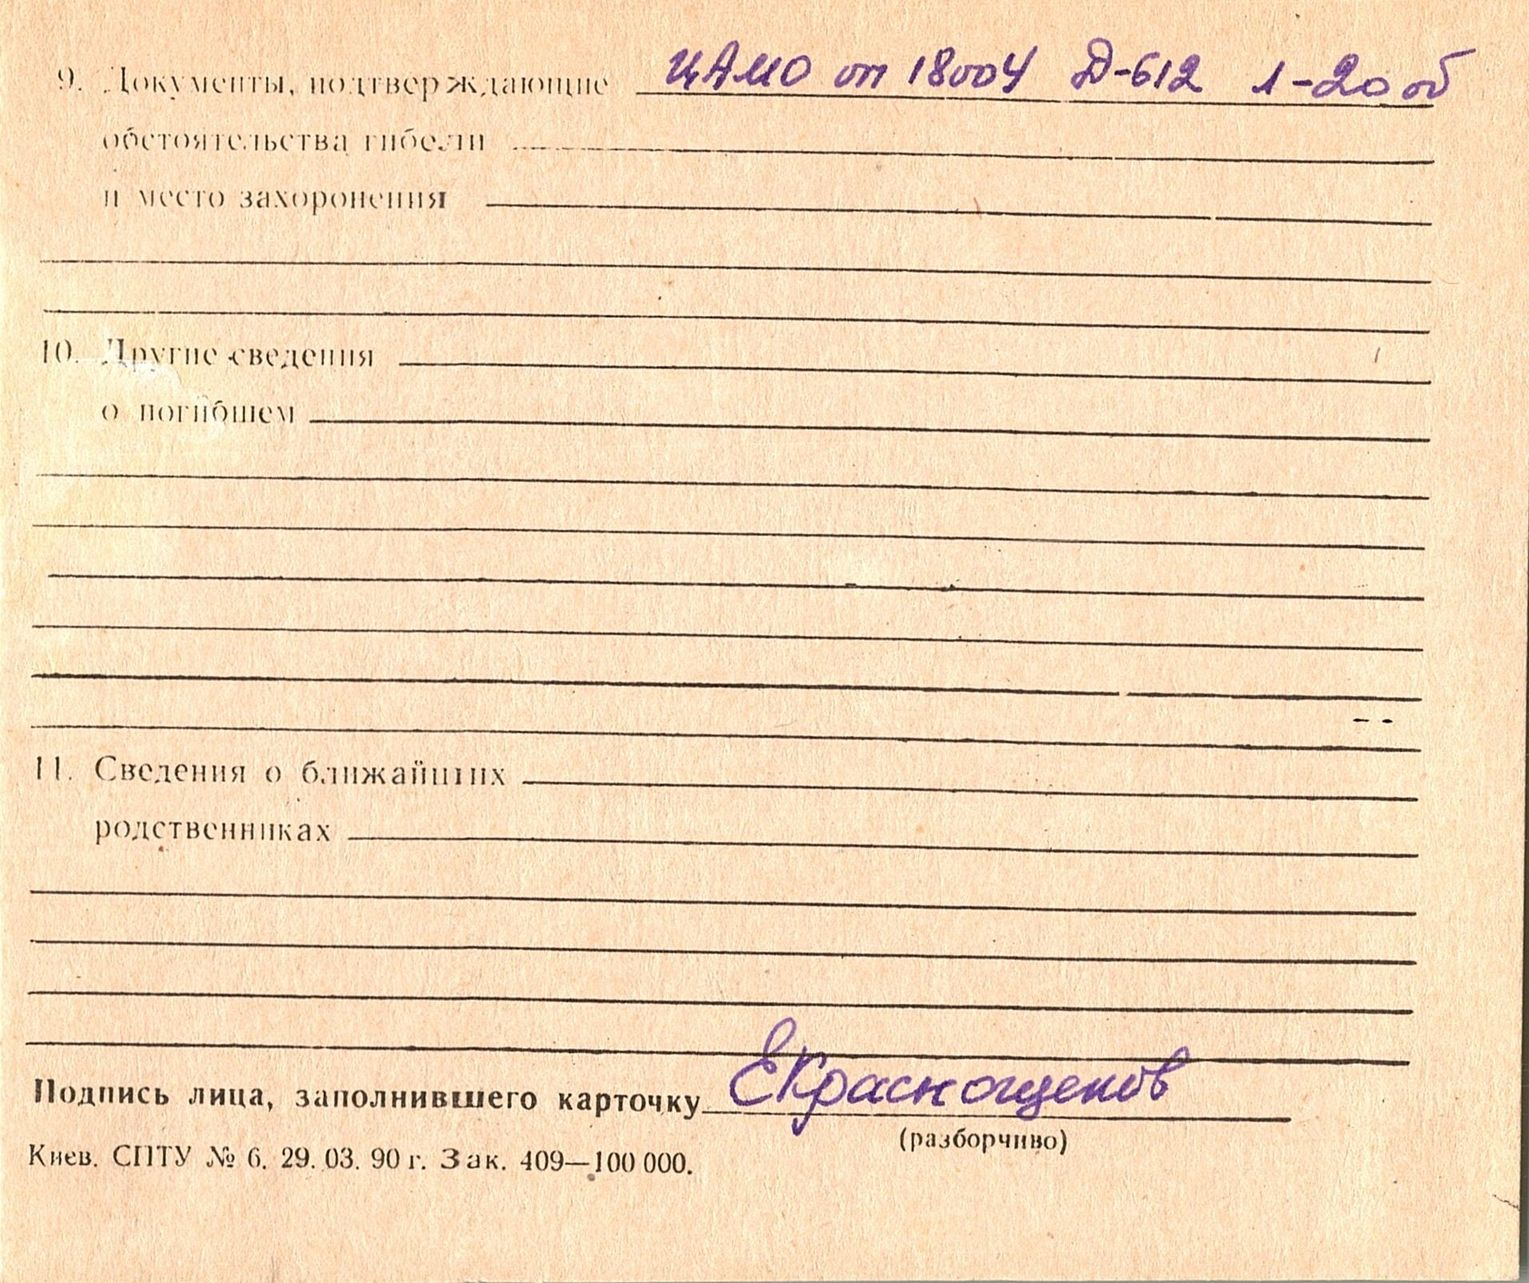 9. Документы, подтверждающие ЦАМО оп 18004 Д-612 л-20 об
обстоятельства гибели
и место захоронения
10. Другие сведения
о погибшем
11. Сведения о ближайших
родственниках
Подпись лица, заполнившего карточку ЕКраснощеков
(разборчиво)
Киев. СПТУ № 6. 29. 03. 90 г. Зак. 409—100 000.